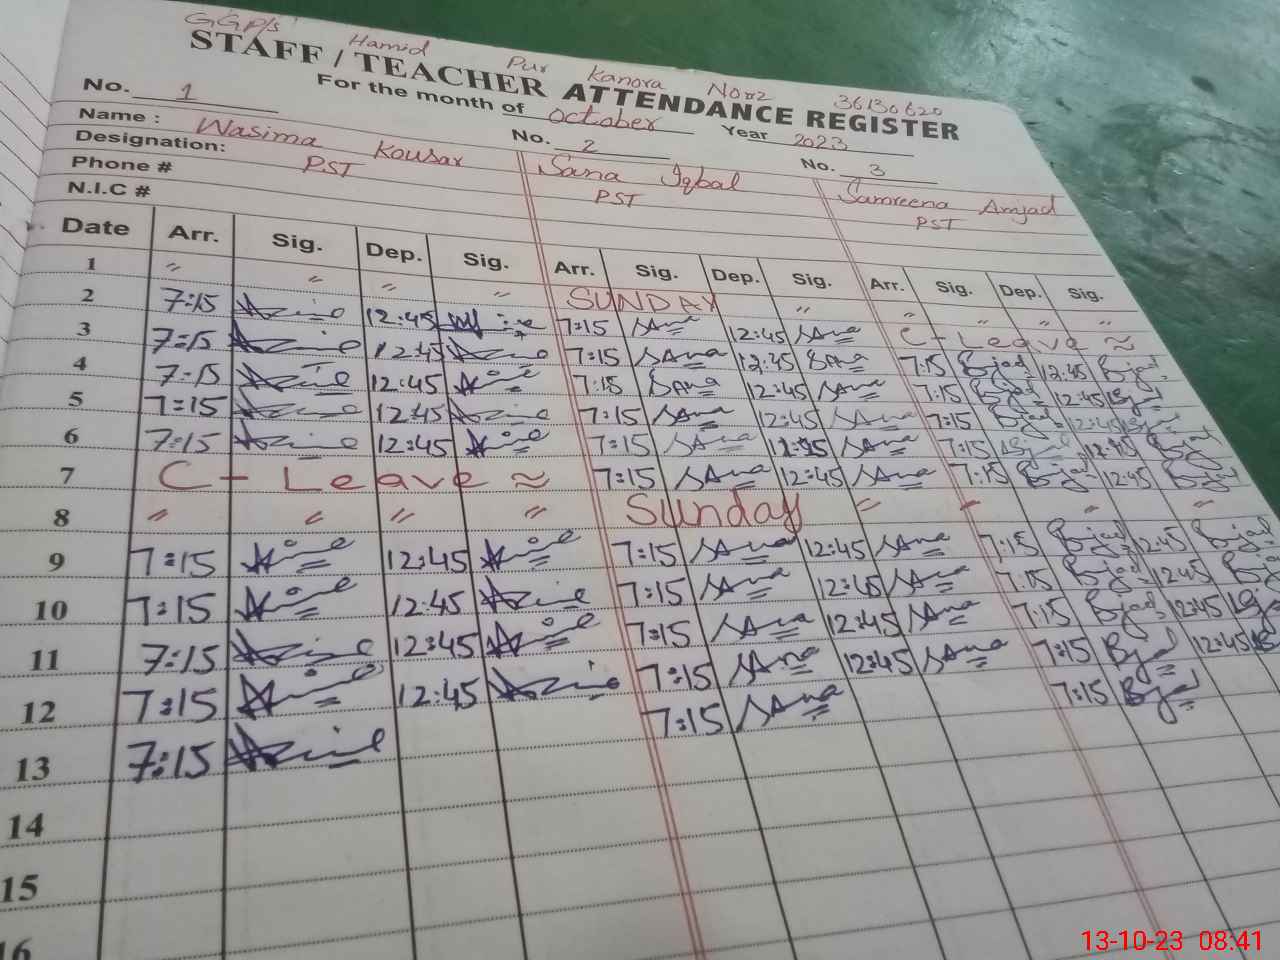 GGP/S Hamid Pur Kanora No#2 36130620
STAFF / TEACHER ATTENDANCE REGISTER
For the month of October Year 2023
No. 1 No. 2 No. 3
Name : Wasima Kousar Sana Iqbal Samreena Amjad
Designation: PST PST PST
Phone #
N.I.C #
Date Arr. Sig. Dep. Sig. Arr. Sig. Dep. Sig. Arr. Sig. Dep. Sig.
1 〃 〃 〃 〃 SUNDAY 〃 〃 〃 〃
2 7:15 12:45 7:15 SAna 12:45 SAna C-Leave ≈
3 7:15 12:45 7:15 SAna 12:45 SAna 7:15 12:45
4 7:15 12:45 7:15 SAna 12:45 SAna 7:15 12:45
5 7:15 12:45 7:15 SAna 12:45 SAna 7:15 12:45
6 7:15 12:45 7:15 SAna 12:45 SAna 7:15 12:45
7 C-Leave ≈ 7:15 SAna 12:45 SAna 7:15 12:45
8 〃 〃 〃 〃 Sunday 〃 〃 〃 〃
9 7:15 12:45 7:15 SAna 12:45 SAna 7:15 12:45
10 7:15 12:45 7:15 SAna 12:45 SAna 7:15 12:45
11 7:15 12:45 7:15 SAna 12:45 SAna 7:15 12:45
12 7:15 12:45 7:15 SAna 12:45 SAna 7:15 12:45
13 7:15 7:15 SAna 7:15
14
15
16
13-10-23 08:41